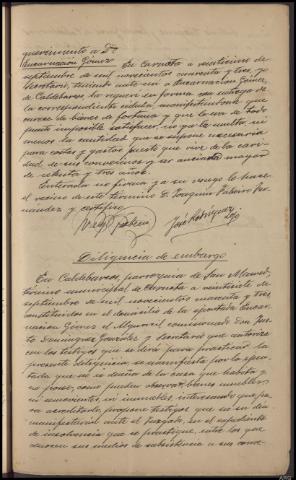 querimiento a Dª
Encarnación Gómez
En Carnota a veintiseis de
septiembre de mil novecientos cuarenta y tres, yo
Secretario, teniendo ante mi a Encarnación Gómez
de Caldebarcos la requeri en forma con entrega de
la correspondiente cédula, manifestando que
carece de bienes de fortuna y que le es de todo
punto imposible satisfacer, no ya la multa, ni
menos la cantidad que se supone necesaria
para costas y gastos puesto que vive de la cari-
dad de sus convecinos y ser anciana mayor
de ochenta y tres años.
Enterada no firma y a su ruego lo hace
el vecino de este término D. Joaquín
y certifico.
José Rodríguez
Diligencia de embargo
En Caldebarcos, parroquia de San Mamed,
término municipal de Carnota a veintisiete de
septiembre de mil novecientos cuarenta y tres
constituidos en el domicilio de la apremiada Encar-
nacion Gómez el Alguacil comisionado
Dominguez González y Secretario que autoriza
con los testigos que se dirán para practicar la
presente diligencia se manifiesta por la apre-
miada que no es dueña de la casa que habita y
no posee, como pueden observar, bienes muebles,
ni semovientes, ni inmuebles, interesando que pa-
ra acreditarlo propone testigos que así
manifestaran ante el Juzgado, en el expediente
de insolvencia que se practique, entre los que
sus medios de subsistencia a sus conve-